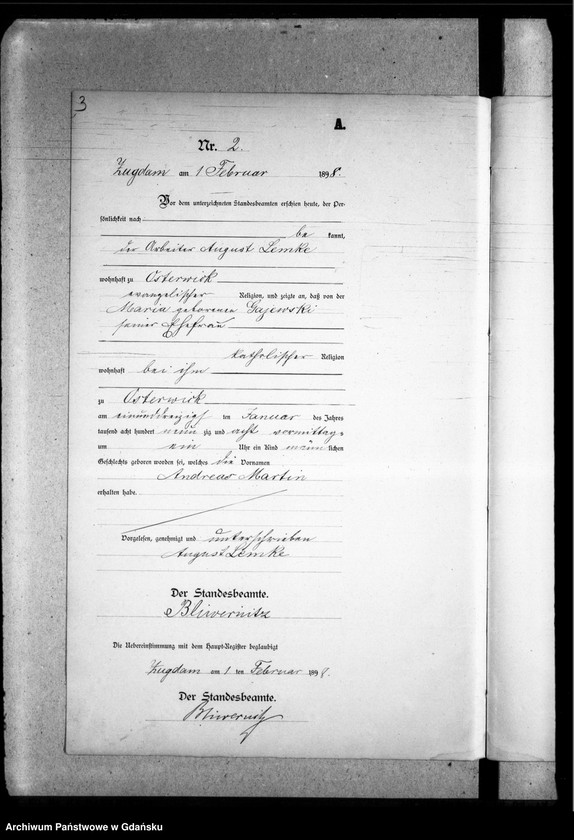 3
A.
Nr. 2.
Zugdam am 1 Februar 1898.
Vor dem unterzeichneten Standesbeamten erschien heute, der Per-
sönlichkeit nach
be kannt,
der Arbeiter August Lemke
wohnhaft zu Osterwick
evangelischer Religion, und zeigte an, daß von der
Maria geborenen Gajewski
seiner Ehefrau
katholischer Religion
wohnhaft bei ihm
zu Osterwick
am einunddreizigs ten Januar des Jahres
tausend acht hundert neun zig und acht vormittags
um ein Uhr ein Kind männ lichen
Geschlechts geboren worden sei, welches die Vornamen
Andreas Martin
erhalten habe.
Vorgelesen, genehmigt und unterschrieben
August Lemke
Der Standesbeamte.
Bliwernitz
Die Uebereinstimmung mit dem Haupt-Register beglaubigt
Zugdam am 1 ten Februar 1898.
Der Standesbeamte.
Bliwernitz
Archiwum Państwowe w Gdańsku